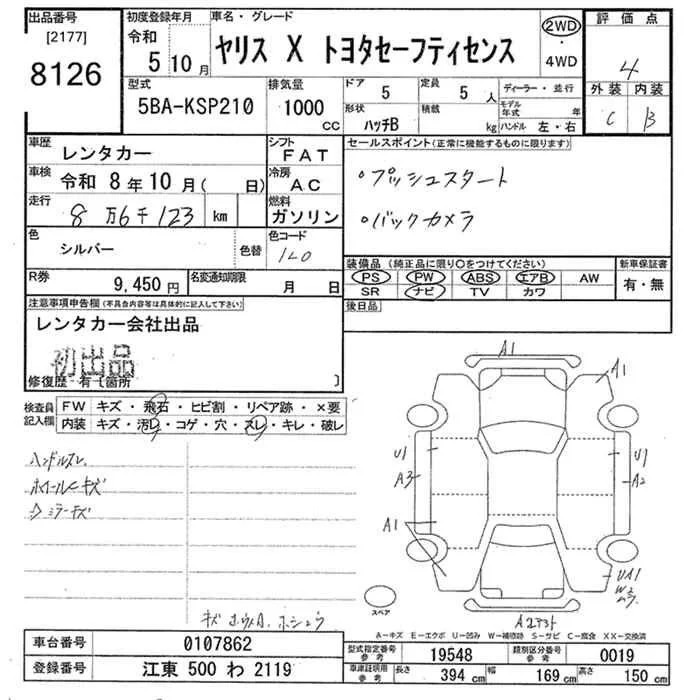 出品番号
[2177]
8126
初度登録年月
令和
5 10月
車名・グレード
ヤリス X トヨタセーフティセンス
2WD
・
4WD
評価点
4
外装 内装
C B
型式
5BA-KSP210
排気量
1000
CC
ドア
5
定員
5 人
形状
ハッチB
積載
kg
ディーラー・並行
モデル年式 年
ハンドル 左・右
車歴
レンタカー
シフト
FAT
車検
令和 8年10月( 日)
冷房
AC
走行
8万6千123 km
燃料
ガソリン
色
シルバー
色替
色コード
1L0
R券
9,450円
名変通知期限
月 日
セールスポイント(正常に機能するものに限ります)
・プッシュスタート
・バックカメラ
装備品(純正品に限り〇をつけてください)
PS PW ABS エアB AW
SR ナビ TV カワ
新車保証書
有・無
後日品
注意事項申告欄(不具合内容等は具体的に記入して下さい)
レンタカー会社出品
初出品
修復歴 有〔箇所 〕
検査員記入欄
FW キズ・飛石・ヒビ割・リペア跡・×要
内装 キズ・汚レ・コゲ・穴・スレ・キレ・破レ
ハンドルスレ
ホイールキズ
ミラーキズ
A1
A1
U1
A3
A1
U1
A2
UA1
W
ムラ
スペア
A-キズ E-エクボ U-凹み W-補修跡 S-サビ C-腐食 XX-交換済
車台番号
0107862
登録番号
江東 500 わ 2119
型式指定番号
参考
19548
類別区分番号
参考
0019
車庫証明用
参考
長さ
394 cm
幅
169 cm
高さ
150 cm